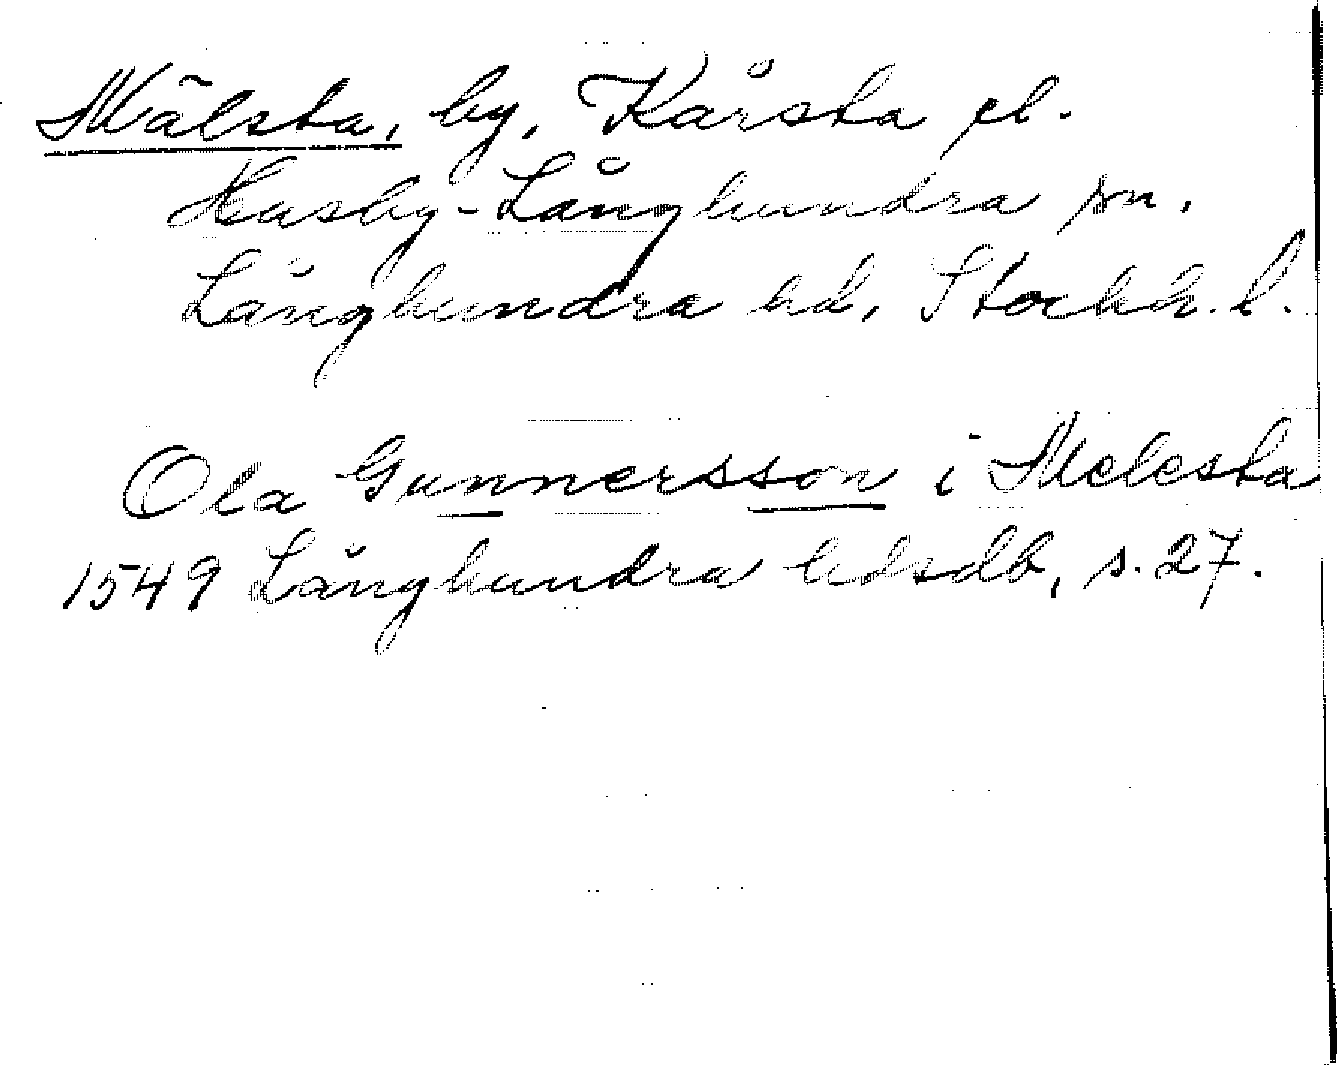 Mälsta, by, Kårsta el.
Husby-Långhundra sn.
Långhundra hd, Stockh. l.
Ola Gunnersson i Melesta
1549 Långhundra hdsdb, s. 27.